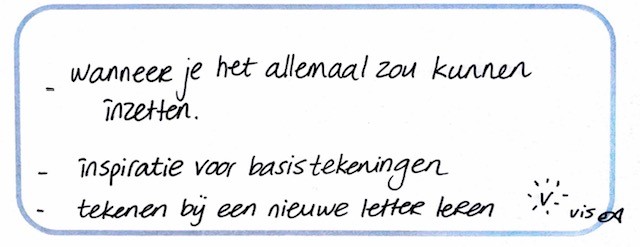 - wanneer je het allemaal zou kunnen
inzetten.
- inspiratie voor basistekeningen
- tekenen bij een nieuwe letter leren
v
vis